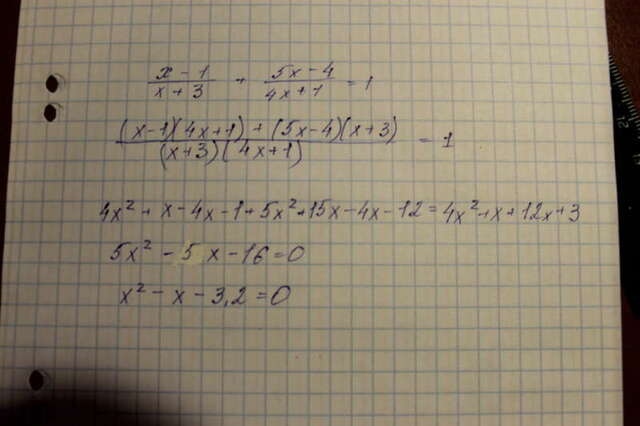 x - 1 / x + 3 + 5x - 4 / 4x + 1 = 1
(x-1)(4x+1) + (5x-4)(x+3) / (x+3)(4x+1) = 1
4x² + x - 4x - 1 + 5x² + 15x - 4x - 12 = 4x² + x + 12x + 3
5x² - 5x - 16 = 0
x² - x - 3,2 = 0